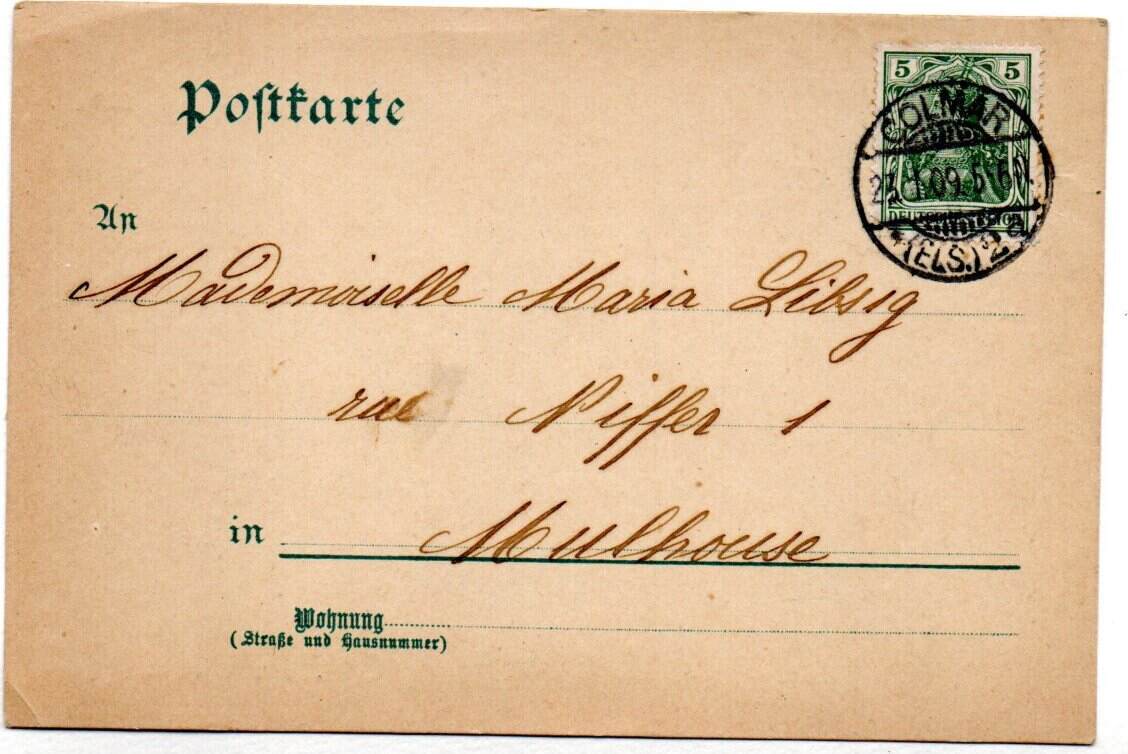 Postkarte
5 5
COLMAR
09.5-6N.
DEUTSCHES REICH
* (ELS.) 2 a
An
Mademoiselle Maria Libsig
rue Niffer 1
in Mulhouse
Wohnung
(Straße und Hausnummer)